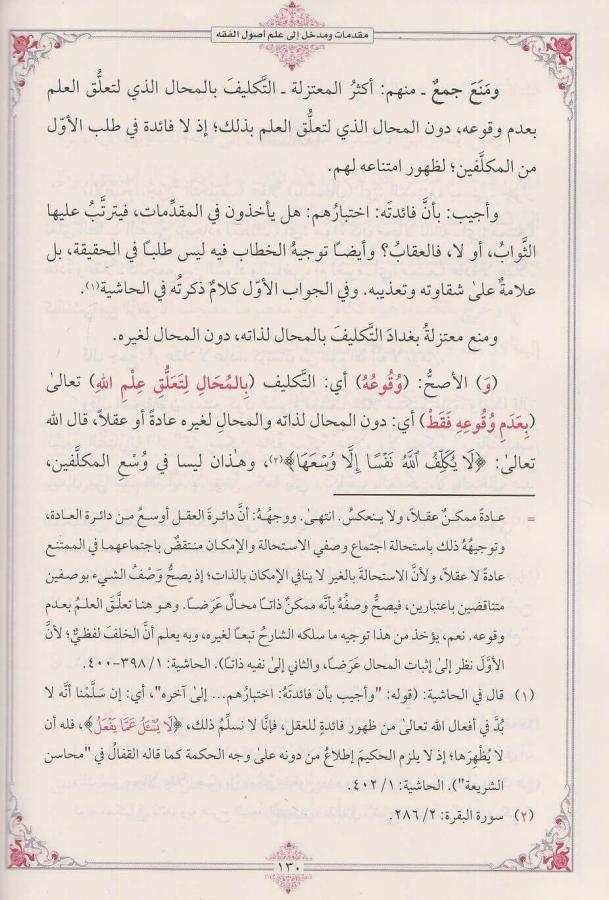 مقدمات ومدخل إلى علم أصول الفقه
ومَنَعَ جمعٌ ـ منهم: أكثرُ المعتزلة ـ التَّكليفَ بالمحال الذي لتعلُّق العلم
بعدم وقوعه، دون المحال الذي لتعلُّق العلم بذلك؛ إذ لا فائدة في طلب الأوّل
من المكلَّفين؛ لظهور امتناعه لهم.
وأجيب: بأنَّ فائدتَه: اختبارُهم: هل يأخذون في المقدِّمات، فيترتَّبُ عليها
الثَّوابُ، أو لا، فالعقابُ؟ وأيضاً توجيهُ الخطاب فيه ليس طلبـاً في الحقيقة، بل
علامةٌ على شقاوته وتعذيبه. وفي الجواب الأوّل كلامٌ ذكرتُه في الحاشية(١).
ومنع معتزلةُ بغدادَ التَّكليفَ بالمحال لذاته، دون المحال لغيره.
(وَ) الأصحُّ: (وُقُوعُهُ) أي: التَّكليف (بِالمُحَالِ لِتَعَلُّقِ عِلْمِ اللهِ) تعالىٰ
(بِعَدَمِ وُقُوعِهِ فَقَطْ) أي: دون المحال لذاته والمحالِ لغيره عادةً أو عقلاً، قال الله
تعالىٰ: ﴿لَا يُكَلِّفُ ٱللَّهُ نَفْسًا إِلَّا وُسْعَهَا﴾(٢)، وهـٰذان ليسا في وُسْعِ المكلَّفين،
= عـادةً ممكـنٌ عقـلاً، ولا يـنعكسُ. انتهـىٰ. ووجهُـهُ: أنَّ دائـرةَ العقـل أوسـعُ مـن دائـرة العـادة،
وتوجيهُهُ ذلك باستحالة اجتماع وصفي الاستحالة والإمكان منتقضٌ باجتماعهمـا في الممتنع
عادةً لا عقلاً، ولأنَّ الاستحالةَ بالغير لا ينافي الإمكان بالذات؛ إذ يصحُّ وَصْفُ الشيء بوصفين
متناقضين باعتبارين، فيصحُّ وصفُهُ بأنَّه ممكنٌ ذاتـاً محالٌ عَرَضـاً. وهـو هنـا تعلُّـق العلـمُ بعـدم
وقوعه. نعم، يؤخذ من هذا توجيه ما سلكه الشارحُ تبعـاً لغيره، وبه يعلم أنَّ الخلفَ لفظيٌّ؛ لأنَّ
الأوَّلَ نظر إلى إثبات المحال عَرَضـاً، والثاني إلى نفيه ذاتـاً). الحاشية: ١/ ٣٩٨-٤٠٠.
(١) قال في الحاشية: (قوله: "وأجيب بأن فائدتَهُ: اختبارُهم... إلىٰ آخره"، أي: إن سَلَّمْنا أنَّه لا
بُدَّ في أفعال الله تعالىٰ من ظهور فائدةٍ للعقل، فإنَّا لا نسلِّمُ ذلك، ﴿لَا يُسْـَٔلُ عَمَّا يَفْعَلُ﴾، فله أن
لا يُظْهِرَها؛ إذ لا يلزم الحكيمَ إطلاعُ من دونه علىٰ وجه الحكمة كما قاله القفال في "محاسن
الشريعة"). الحاشية: ١/ ٤٠٢.
(٢) سورة البقرة: ٢/ ٢٨٦.
١٣٠